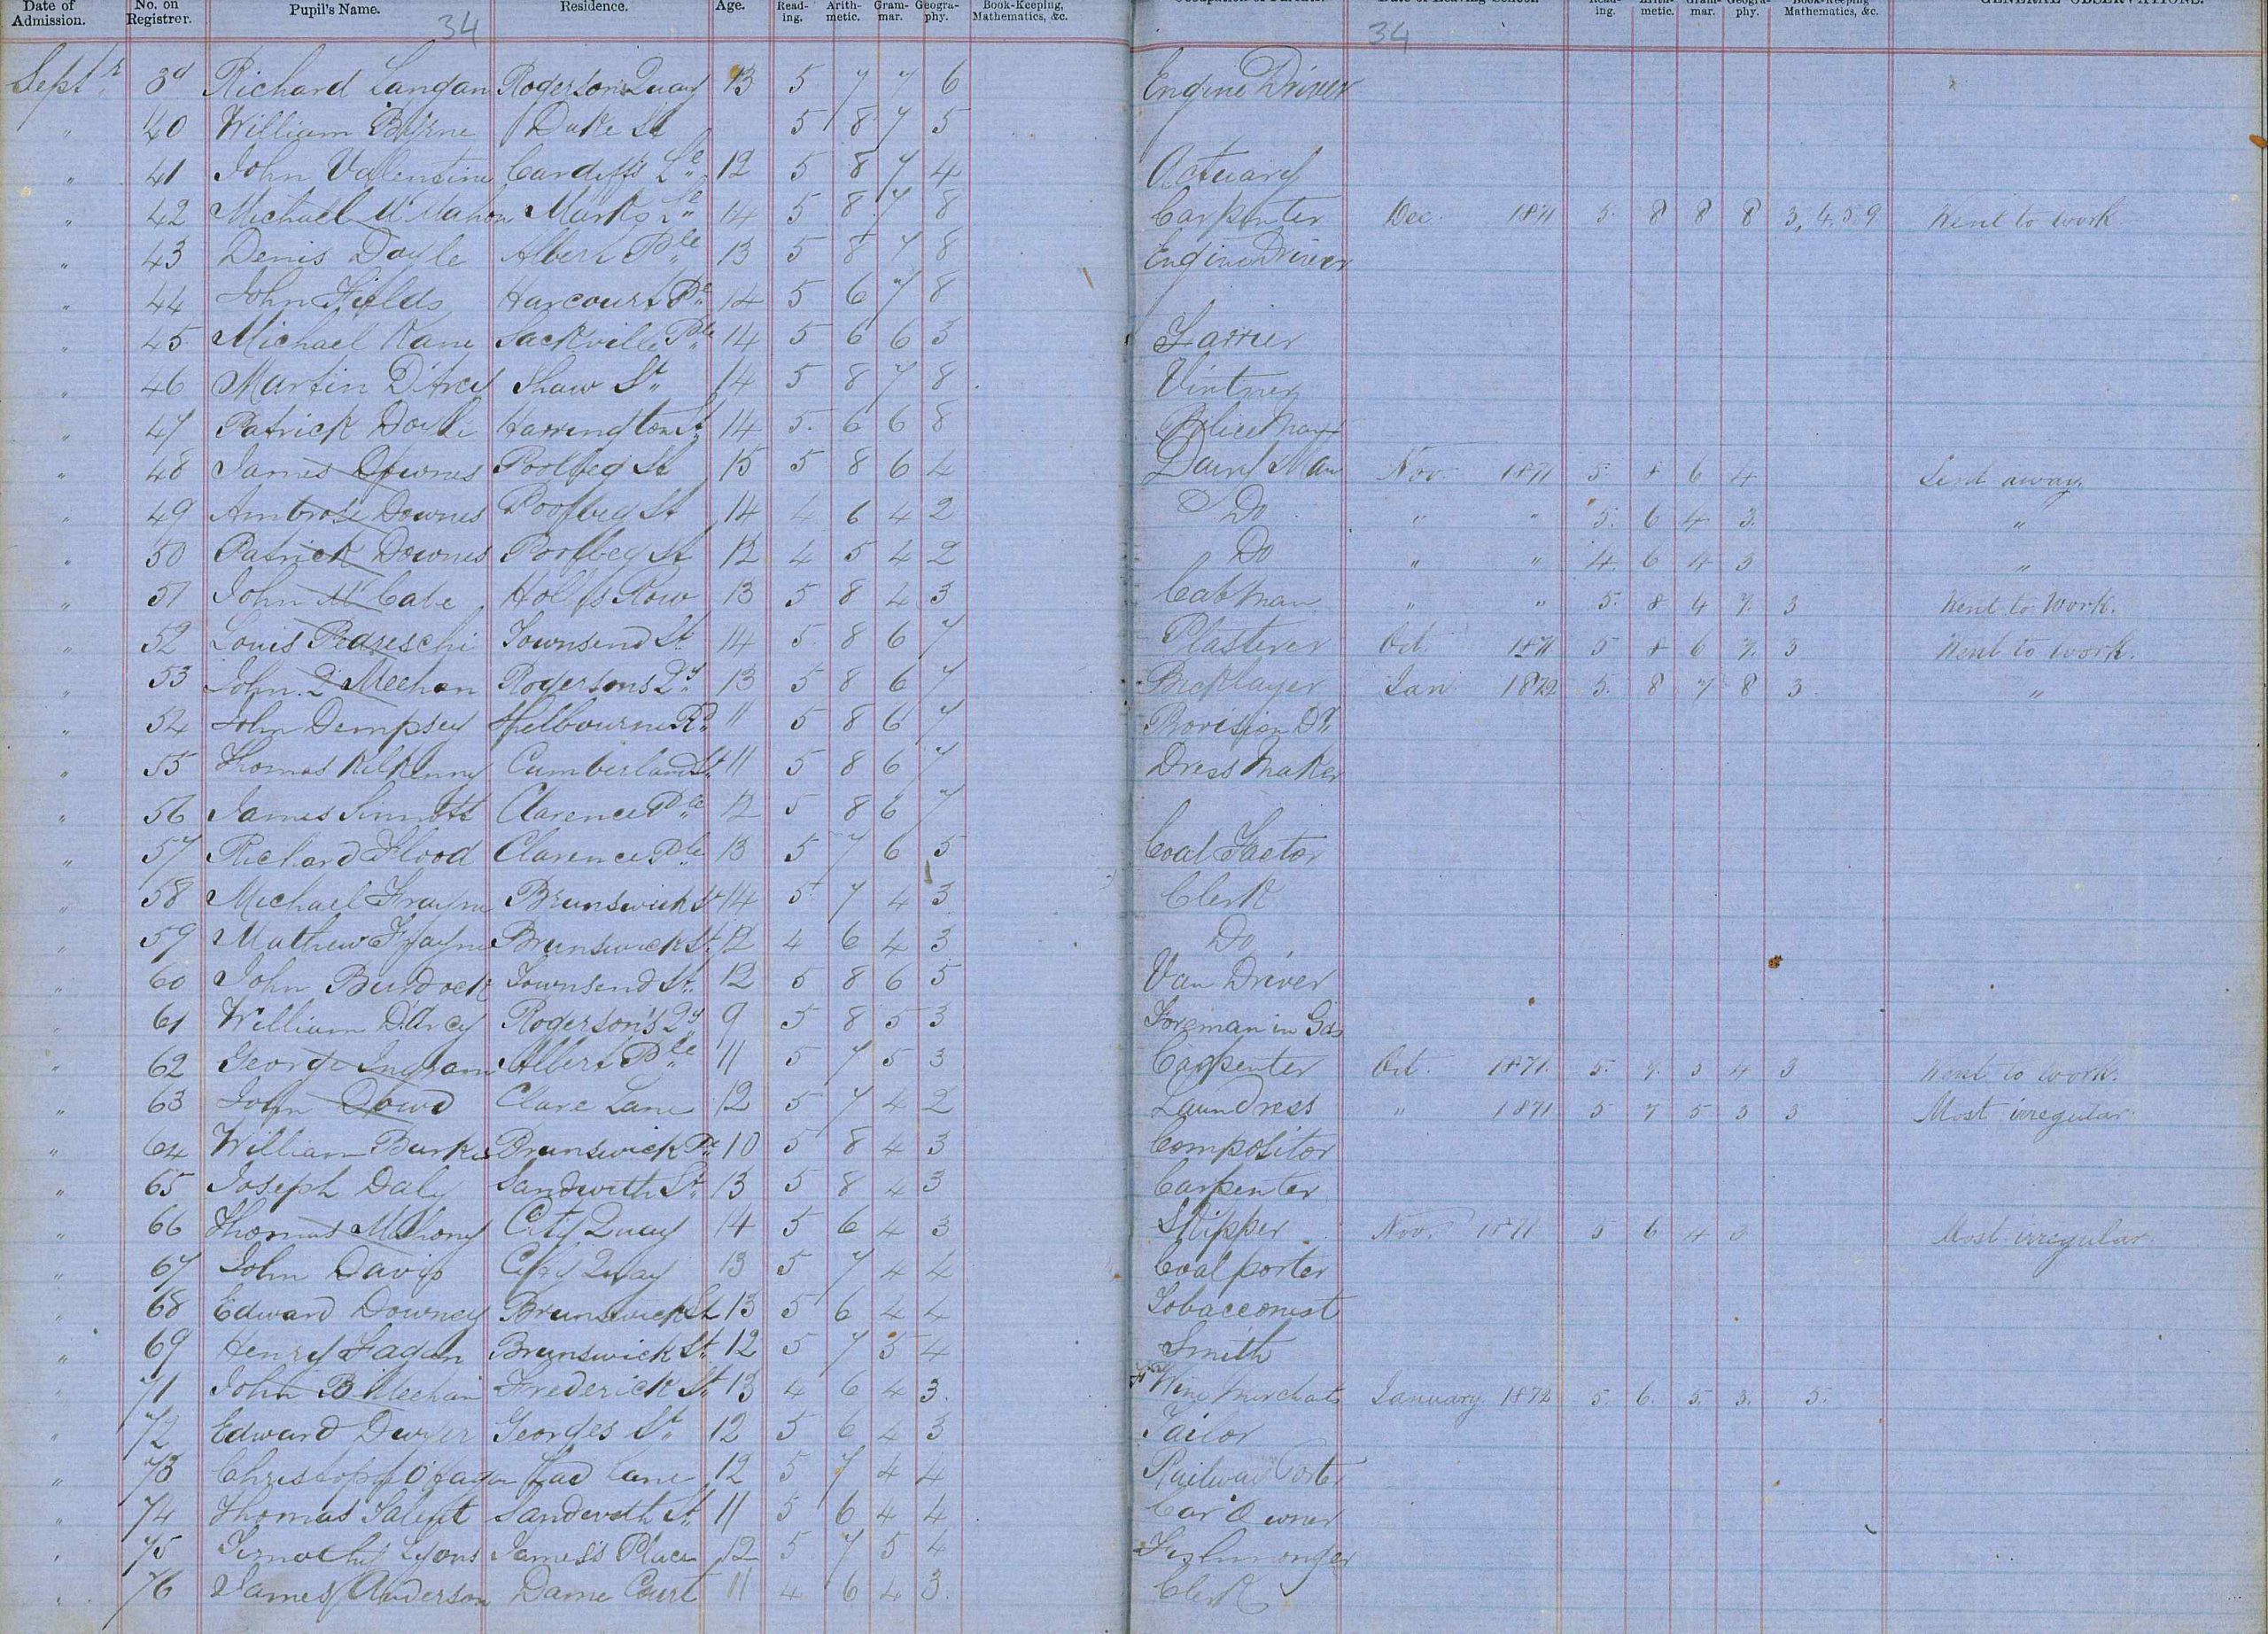 Date of Admission. No. on Registrer. Pupil's Name. Residence. Age. Read-ing. Arith-metic. Gram-mar. Geogra-phy. Book-Keeping, Mathematics, &c.
34 34
Septr 39 Richard Langan Rogersons Quay 13 5 7 7 6 Engine Driver
" 40 William Birne Duke St 5 8 7 5
" 41 John Vallentine Cardiffs Le 12 5 8 7 4 Actuary
" 42 Michael McMahon Marks Le 14 5 8 7 8 Carpenter Dec. 1871 5. 8 8 8 3, 4, 5 9 Went to work
" 43 Denis Doyle Albert Ple 13 5 8 7 8 Engine Driver
" 44 John Fields Harcourt Pe 14 5 6 7 8
" 45 Michael Kane Sackville Ple 14 5 6 6 3 Farrier
" 46 Martin D'Arcy Shaw St 14 5 8 7 8 Vintner
" 47 Patrick Doyle Harrington St 14 5. 6 6 8 Police Man
" 48 James Downes Poolbeg St 15 5 8 6 4 Dairy Man Nov. 1871 5. 8 6 4 Sent away
" 49 Ambrose Downes Poolbeg St 14 4 6 4 2 Do " " 5. 6 4 3. "
" 50 Patrick Downes Poolbeg St 12 4 5 4 2 Do " " 4. 6 4 3 "
" 51 John McCabe Holles Row 13 5 8 4 3 Cabman " " 5. 8 4 7. 3 Went to Work.
" 52 Louis Pedreschi Townsend St 14 5 8 6 7 Plasterer Oct. 1871 5 8 6 7. 3 Went to work.
" 53 John Meehan Rogersons Qy 13 5 8 6 7 Bricklayer Jan 1872 5. 8 7 8 3 "
" 54 John Dempsey Shelbourne Rd 11 5 8 6 7 Provision Dr
" 55 Thomas Kilkenny Cumberland St 11 5 8 6 7 Dress Maker
" 56 James Sinnott Clarence Ple 12 5 8 6 7
" 57 Richard Flood Clarence Ple 13 5 7 6 5 Coal Factor
" 58 Michael Frayne Brunswick St 14 5 7 4 3 Clerk
" 59 Mathew Frayne Brunswick St 12 4 6 4 3 Do
" 60 John Burdock Townsend St 12 5 8 6 5 Van Driver
" 61 William D'Arcy Rogerson's Qy 9 5 8 5 3 Foreman in Gas
" 62 George Ingram Albert Ple 11 5 7 5 3 Carpenter Oct. 1871. 5. 7. 5 4 3 Went to work.
" 63 John Dowd Clare Lane 12 5 7 4 2 Laundress " 1871 5 7 5 3 3 Most irregular
" 64 William Burke Brunswick Pe 10 5 8 4 3 Compositor
" 65 Joseph Daly Sandwith St 13 5 8 4 3 Carpenter
" 66 Thomas Mahony City Quay 14 5 6 4 3 Skipper Nov. 1871 5 6 4 3 Most irregular
" 67 John Davis City Quay 13 5 7 4 4 Coal porter
" 68 Edward Downey Brunswick St 13 5 6 4 4 Tobacconist
" 69 Henry Fagan Brunswick St. 12 5 7 5 4 Smith
" 71 John B Meehan Frederick St 13 4 6 4 3. Wine Merchants January 1872 5. 6. 5. 3. 5.
" 72 Edward Dwyer Georges St 12 5 6 4 3 Tailor
" 73 Lad Lane 12 5 7 4 4 Railway Porter
" 74 Thomas Talent Sandwith St 11 5 6 4 4 Car Owner
" 75 Timothy Lyons James's Place 12 5 7 5 4 Fishmonger
" 76 James Anderson Dame Court 11 4 6 4 3. Clerk